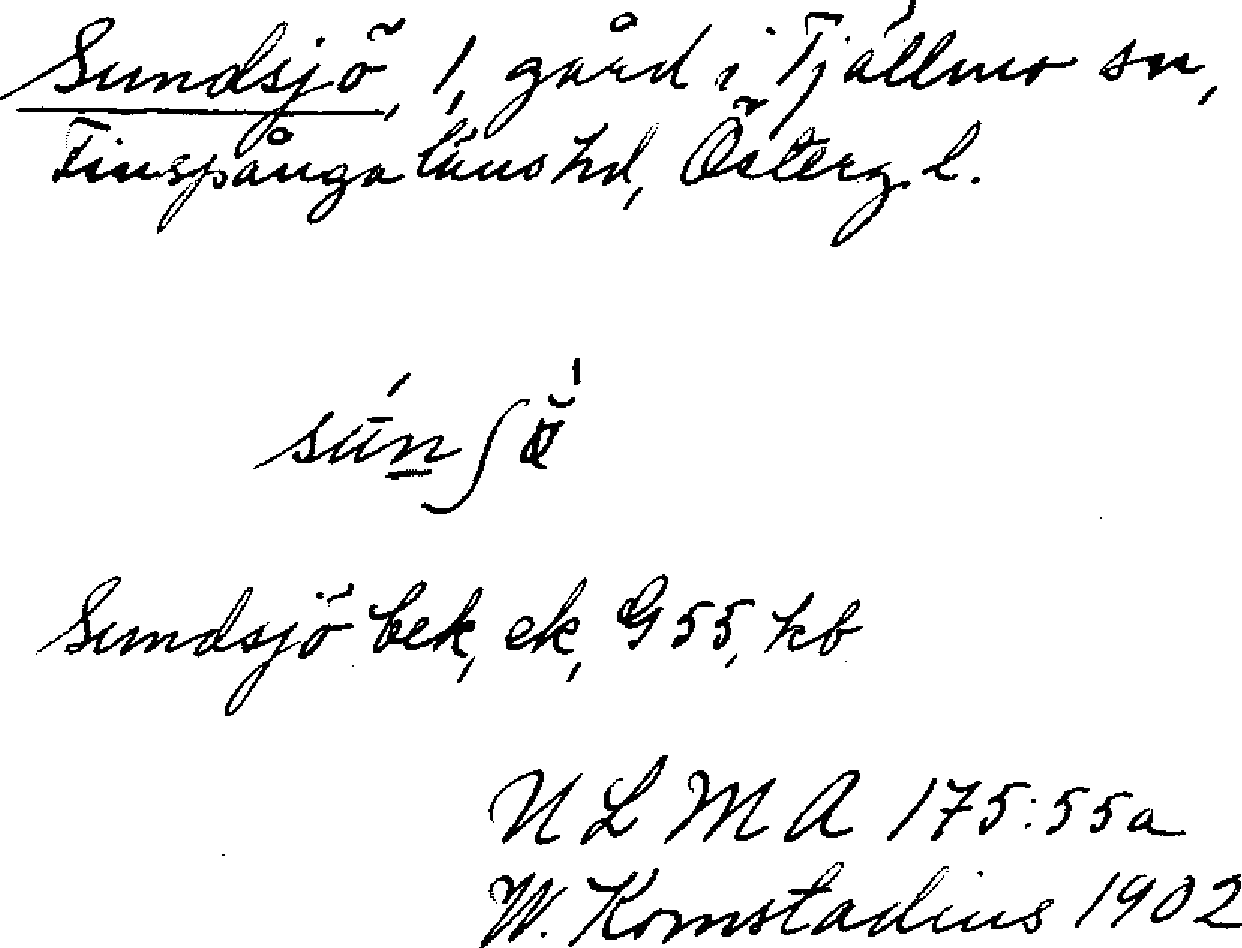 Sundsjö, 1, gård i Tjällmo sn,
Finspånga läns hd, Österg. l.
Sundsjö bek, ek, G 55, kb
N L M A 175:55a
W. Komstadius 1902